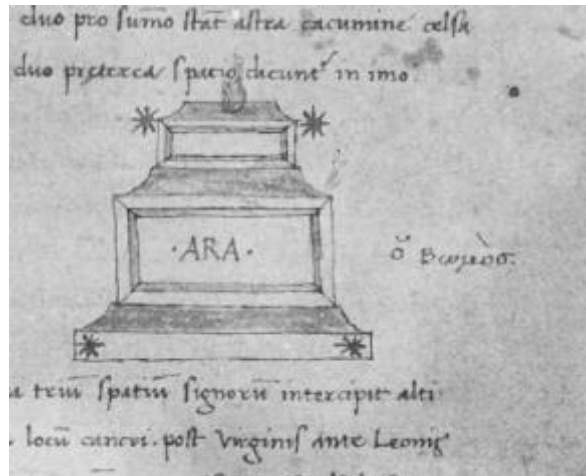 duo pro sum̄o stāt astra cacumine celsa
duo preterea spatio ducunt᷑ in imo
·ARA·
ὁ βωμὸσ.
triū spatiū signorū intercipit alti
locū cancri. post Virginis ante Leonis